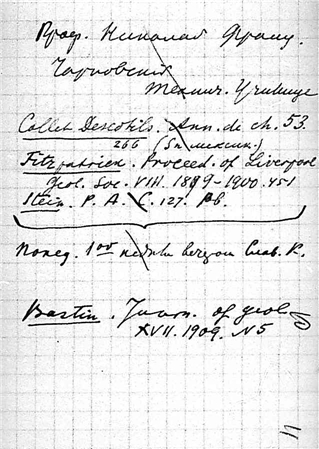 Проф. Николай Франц.
Чарновский
Технич. Училище
Collet Descotils. Ann. de ch. 53.
266 (Sn мексик.)
Fitzpatrick. Proceed. of Liverpool
geol. Soc. VIII. 1899-1900. 451
Stein. P. A. C. 127. Pb.
Понед. 1⁰⁰ Слав. К.
Bastin. Journ. of geol
XVII. 1909. N 5